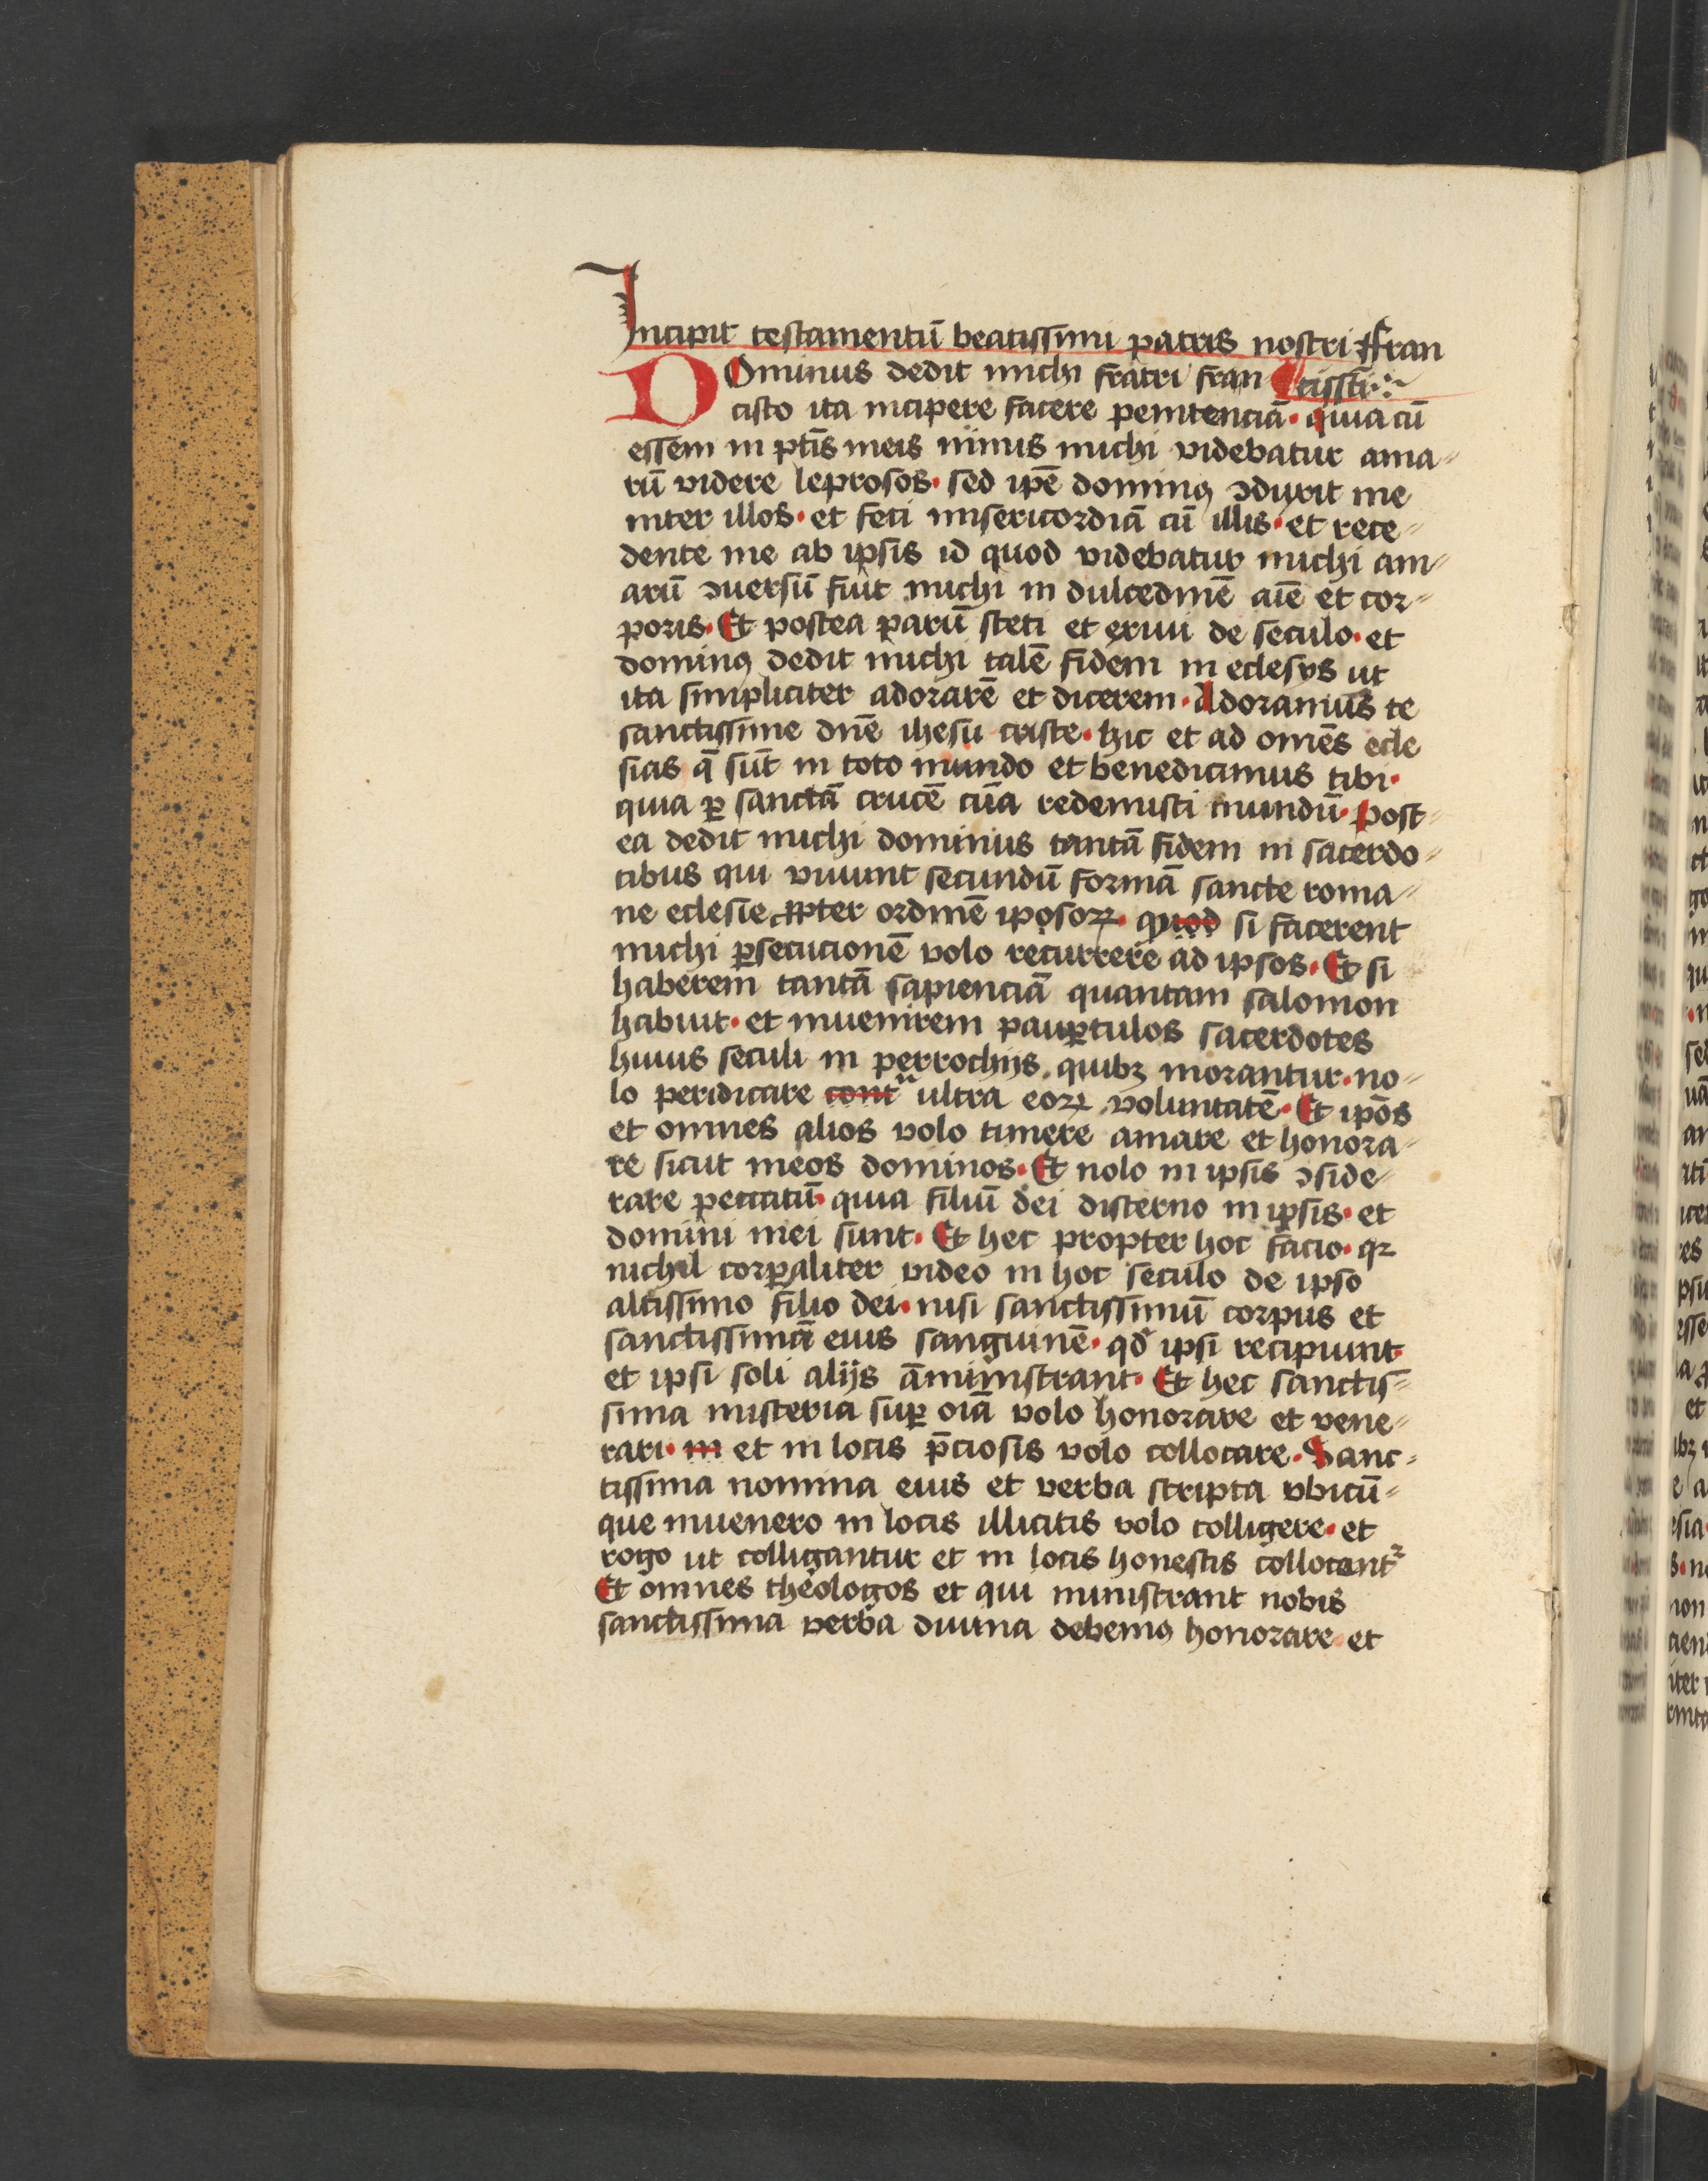 Incipit testamentū beatissimi patris nostri ffran
cissci
DOminus dedit michi fratri fran
cisco ita incipere facere penitenciā· quia cū
essem in pctīs meis nimis michi videbatur ama
rū videre leprosos· sed ipē dominꝯ ꝯduxit me
inter illos· et feci misericordiā cū illis· et rece
dente me ab ipsis id quod videbatur michi am
arū ꝯuersū fuit michi in dulcedinē aīe et cor
poris· Et postea parū steti et exiui de seculo· et
dominꝯ dedit michi talē fidem in eclesys ut
ita simpliciter adorarē et dicerem· Adoramus te
sanctissime dnē ihesu criste· hic et ad omēs ecle
sias q̄ sūt in toto mundo et benedicimus tibi·
quia ꝑ sanctā crucē tūa redemisti mundū· Post
ea dedit michi dominus tantā fidem in sacerdo
tibus qui viuunt secundū formā sancte roma
ne eclesie ꝓpter ordinē iposoꝝ· quod si facerent
michi ꝑsecucionē volo recurrere ad ipsos· Et si
haberem tantā sapienciā quantam salomon
habuit· et inuenirem pauꝑculos sacerdotes
huius seculi in perrochijs quibꝫ morantur· no
lo peridicare cont ultra eoꝝ voluntatē· Et ipōs
et omnes alios volo timere amare et honora
re sicut meos dominos· Et nolo in ipsis ꝯside
rare peccatū· quia filiū dei discerno in ipsis· et
domini mei sunt· Et hec propter hoc facio· qꝛ
nichil corꝑaliter video in hoc seculo de ipso
altissimo filio dei· nisi sanctissimū corpus et
sanctissimā eius sanguinē· qd̄ ipsi recipiunt
et ipsi soli alijs āministrant· Et hec sanctis
sima misteria suꝑ oīa volo honorare et vene
rari· in et in locis p̄ciosis volo collocare· Sanc
tissima nomina eius et verba scripta vbicū
que inuenero in locis illicitis volo colligere· et
rogo ut colligantur et in locis honestis collocantr
Et omnes theologos et qui ministrant nobis
sanctissima verba diuina debemꝯ honorare et